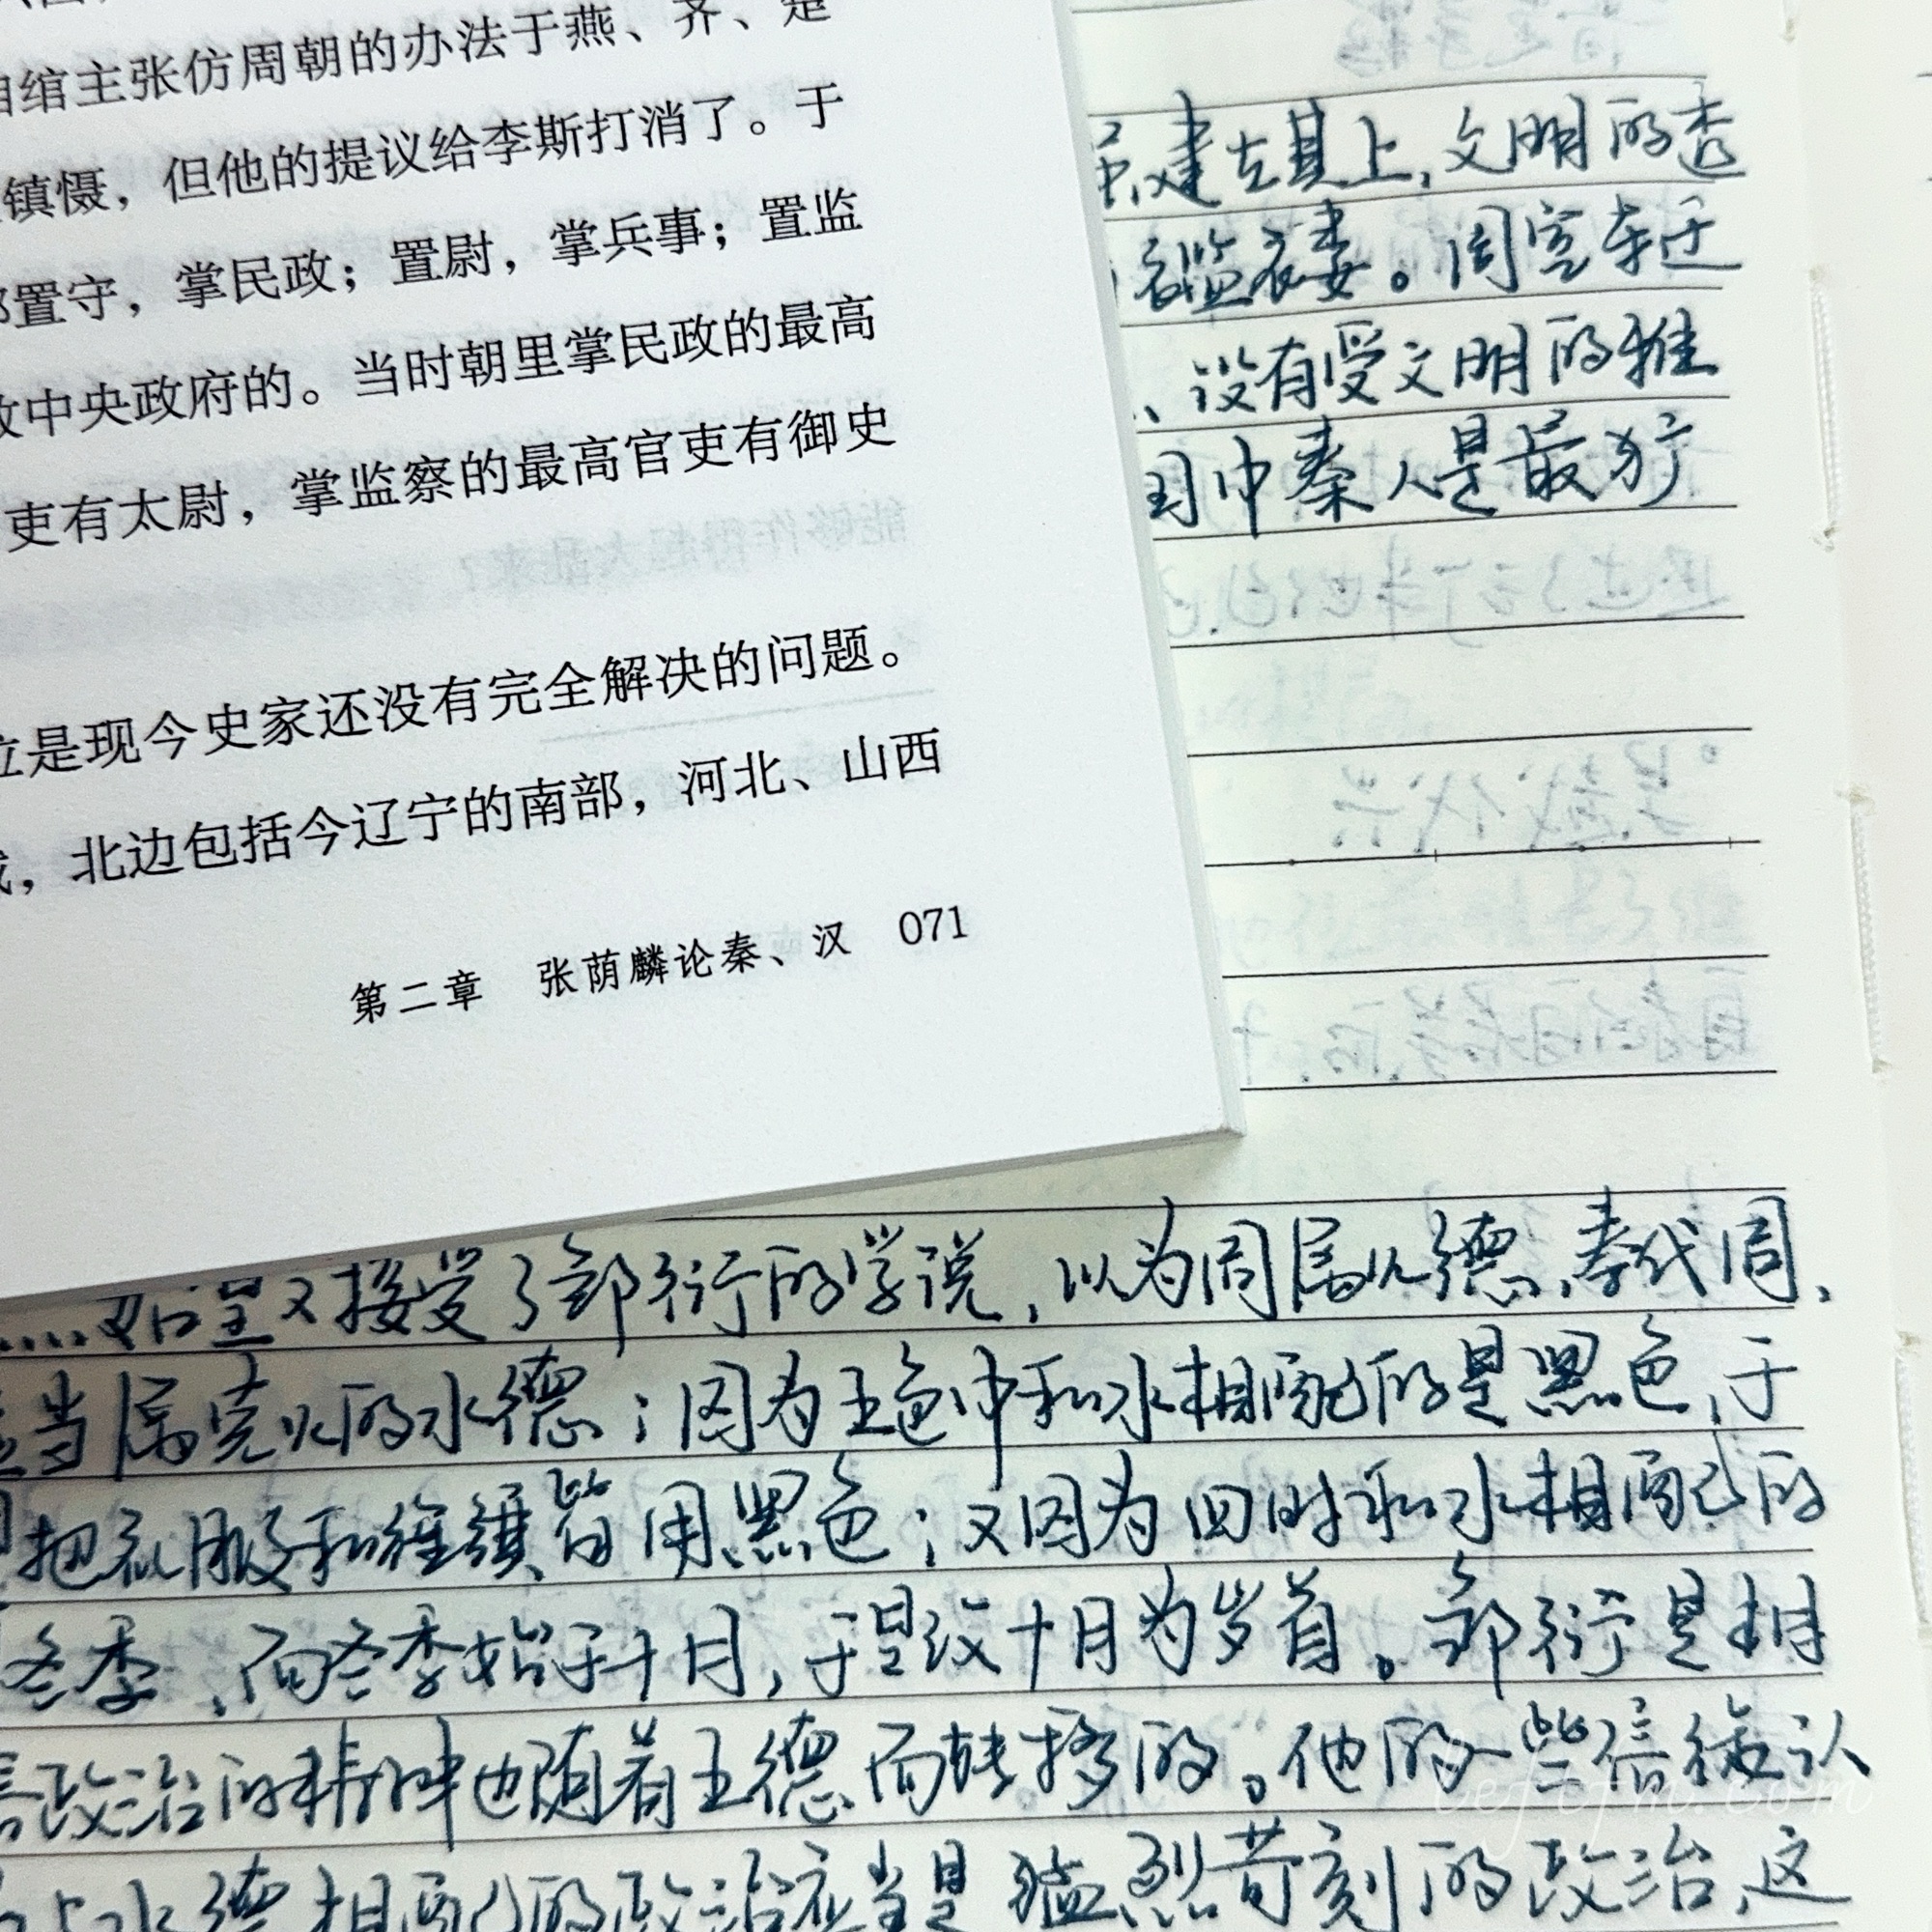 绾主张仿周朝的办法于燕、齐、楚
镇慑，但他的提议给李斯打消了。于
置守，掌民政；置尉，掌兵事；置监
中央政府的。当时朝里掌民政的最高
吏有太尉，掌监察的最高官吏有御史
是现今史家还没有完全解决的问题。
，北边包括今辽宁的南部，河北、山西
第二章 张荫麟论秦、汉 071
建在其上，文明的透
褴褛。周室东迁
、没有受文明的雅
国中秦人是最犷
……始皇又接受了邹衍的学说，以为周属火德，秦代周，
应当属克火的水德；因为五色中和水相配的是黑色，于
把礼服和旌旗皆用黑色；又因为四时和水相配的
冬季，而冬季始于十月，于是改十月为岁首。邹衍是相
信政治的精神也随着五德而转移的。他的一些信徒认
与水德相配的政治应当是猛烈苛刻的政治，这